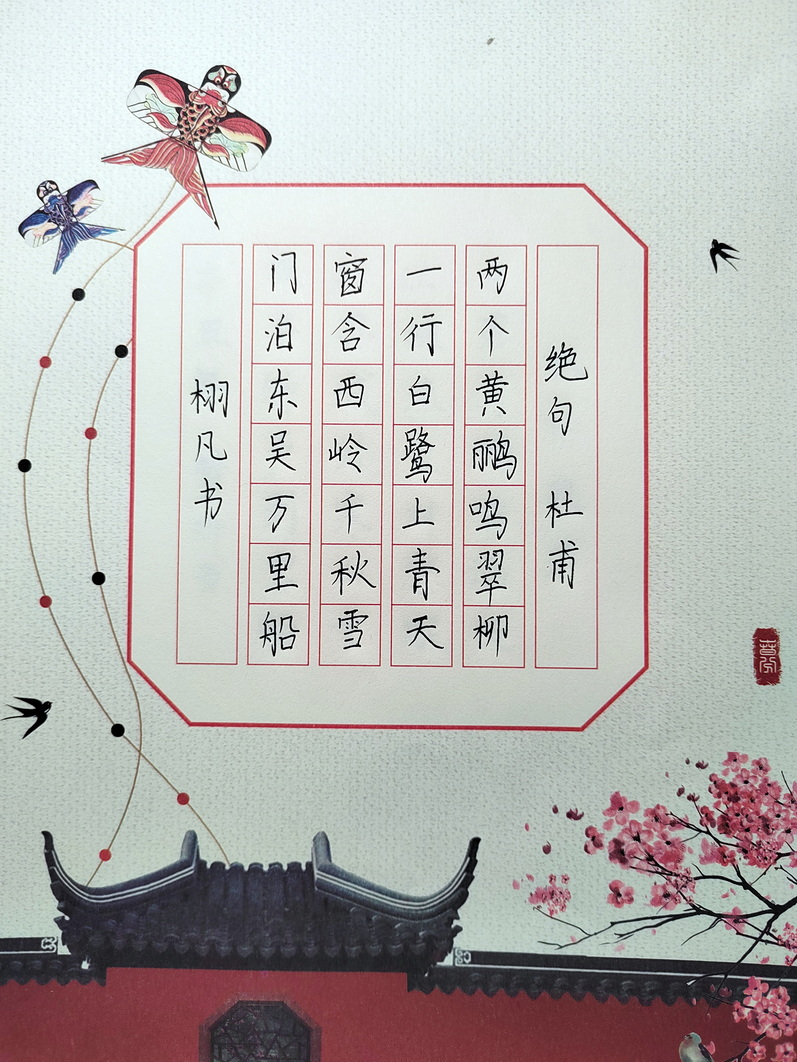 绝句 杜甫
两个黄鹂鸣翠柳
一行白鹭上青天
窗含西岭千秋雪
门泊东吴万里船
栩凡书